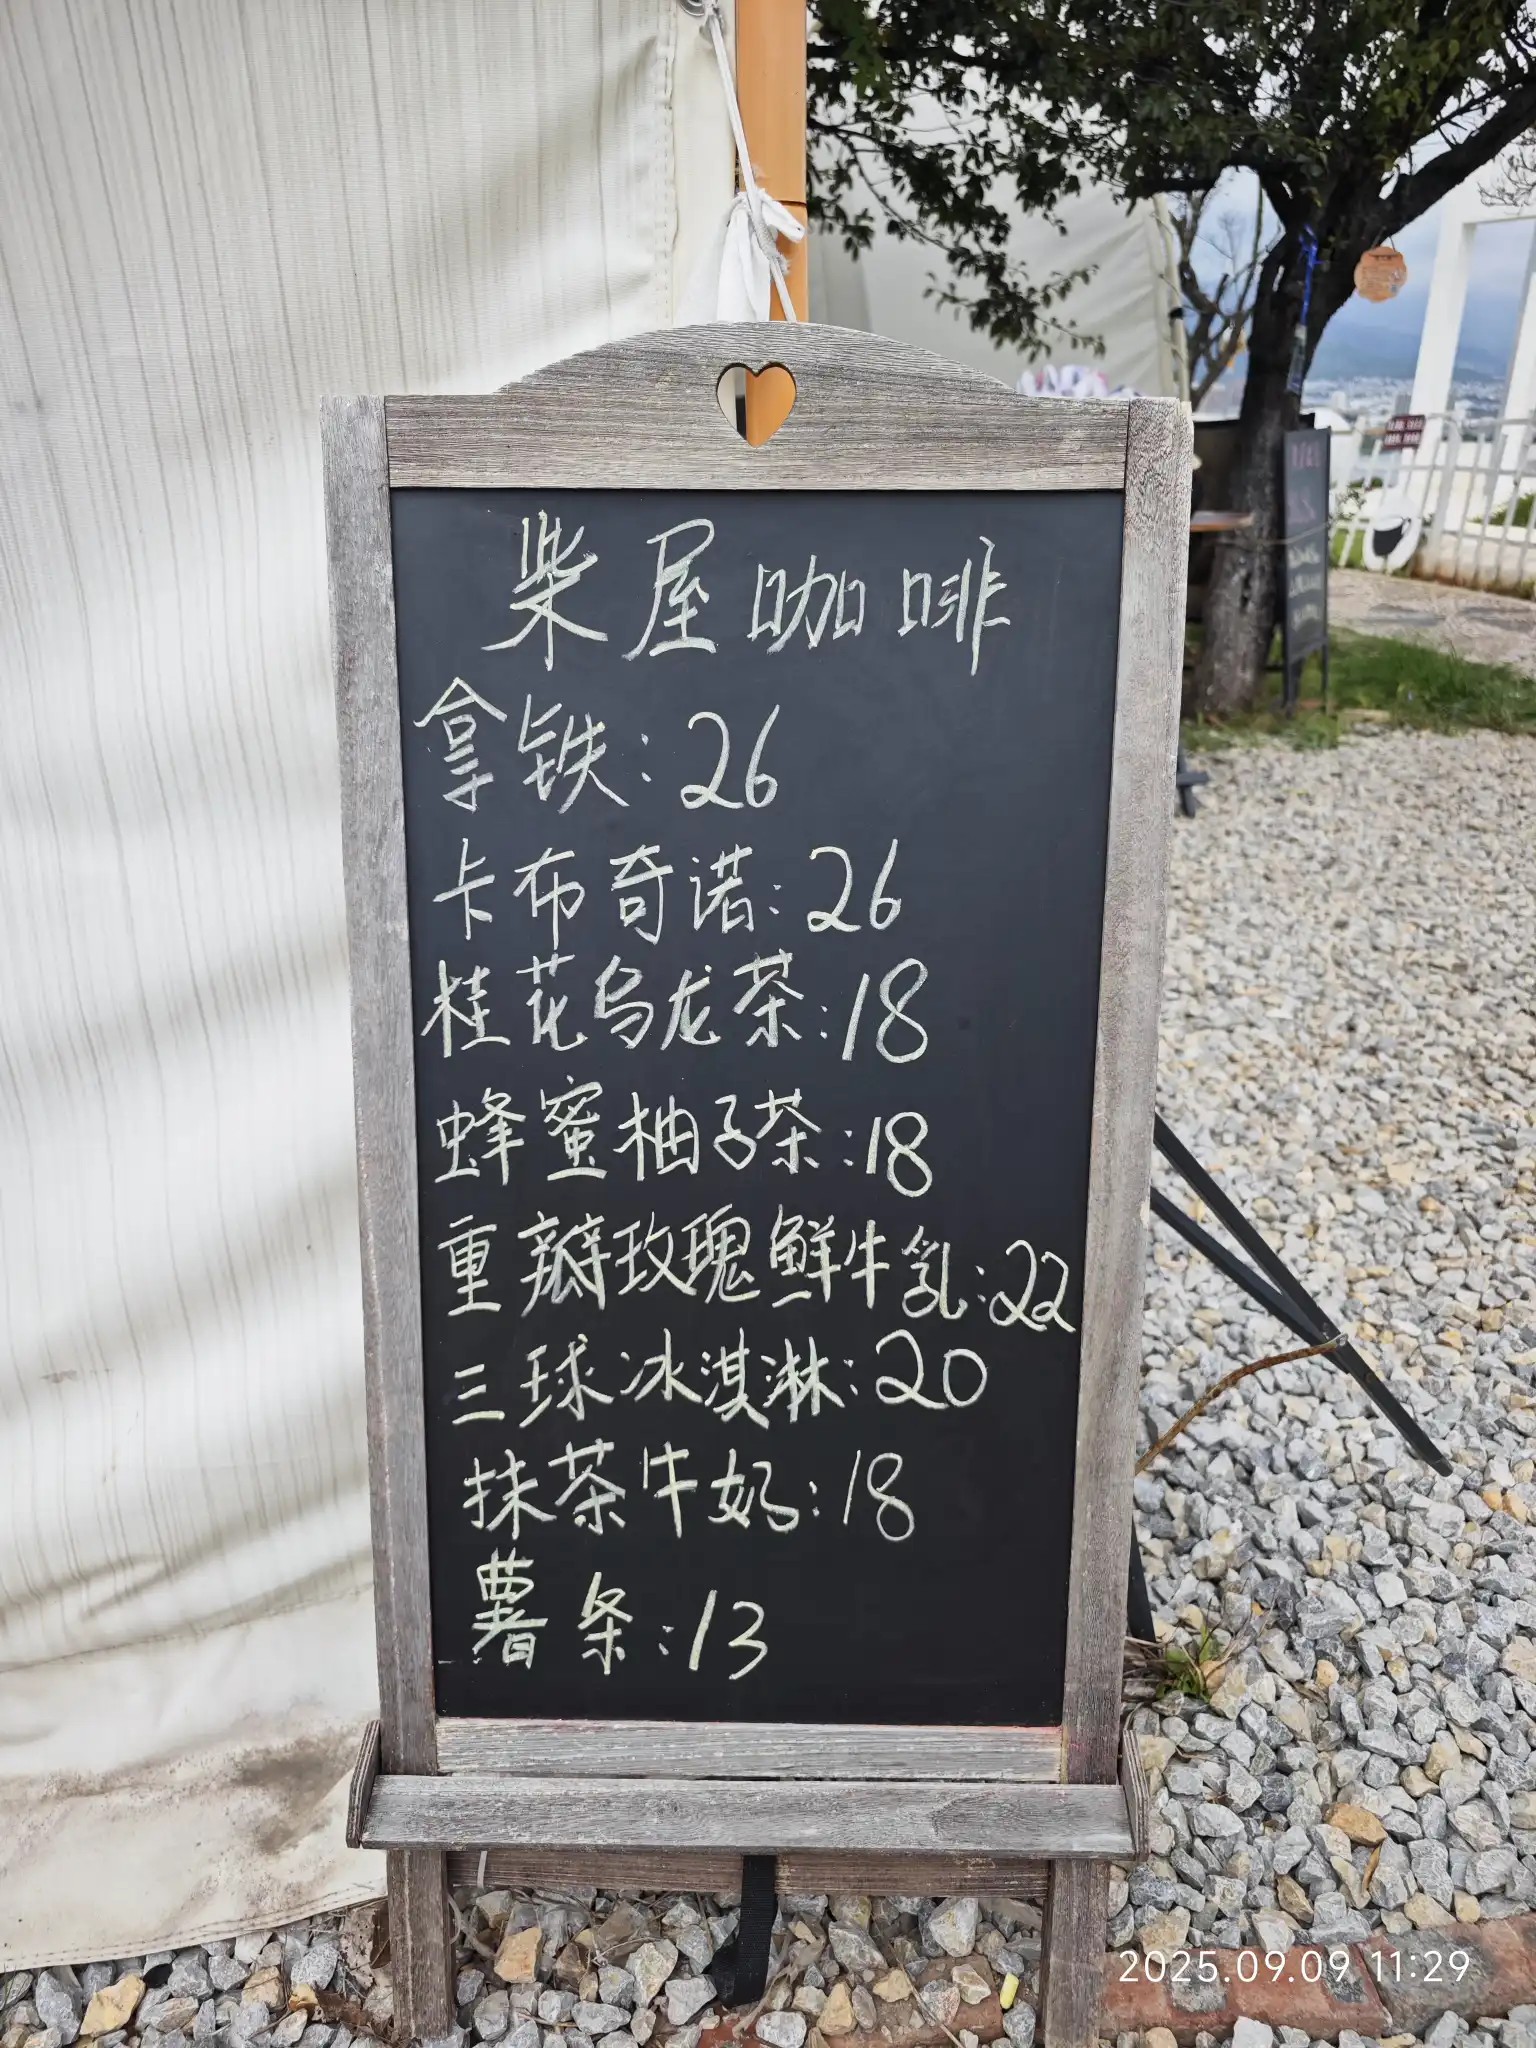 柴屋咖啡
拿铁：26
卡布奇诺：26
桂花乌龙茶：18
蜂蜜柚子茶：18
重瓣玫瑰鲜牛乳：22
三球冰淇淋：20
抹茶牛奶：18
薯条：13
2025.09.09 11:29